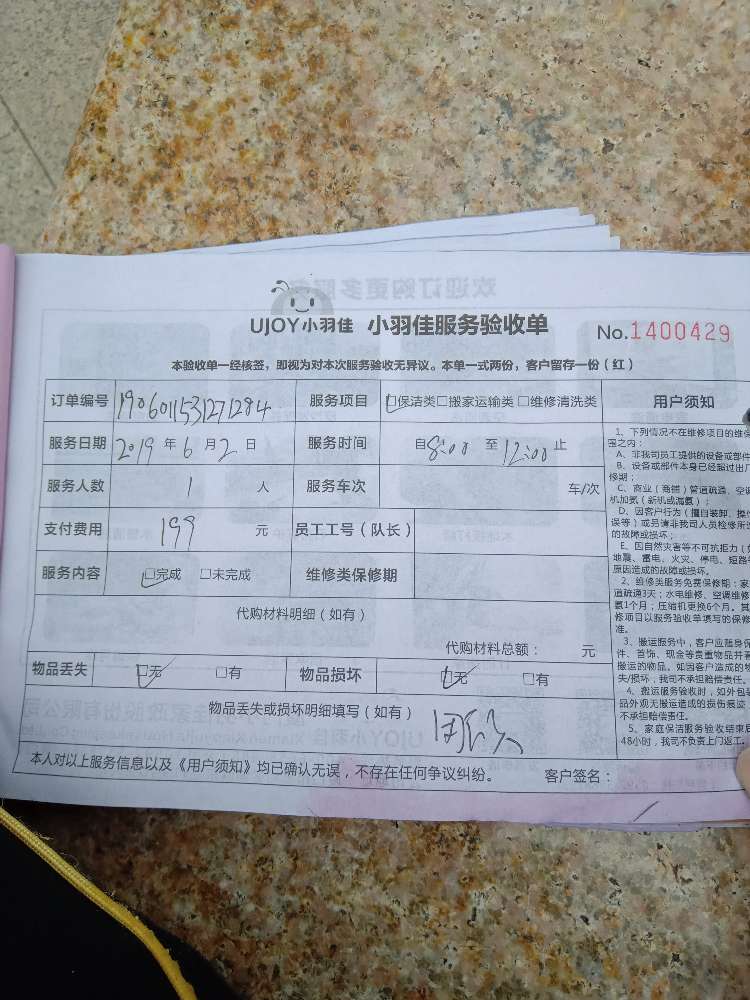 UJOY小羽佳 小羽佳服务验收单 No.1400429
本验收单一经核签，即视为对本次服务验收无异议。本单一式两份，客户留存一份（红）
订单编号 190601153127 1284 服务项目 □保洁类□搬家运输类□维修清洗类 用户须知
服务日期 2019 年 6 月 2 日 服务时间 自 8:00 至 12:00 止
服务人数 1 人 服务车次 车/次
支付费用 199 元 员工工号（队长）
服务内容 □完成 □未完成 维修类保修期
代购材料明细（如有）
代购材料总额： 元
物品丢失 □无 □有 物品损坏 □无 □有
物品丢失或损坏明细填写（如有）
本人对以上服务信息以及《用户须知》均已确认无误，不存在任何争议纠纷。 客户签名：
1、下列情况不在维修项目的维保
围之内：
A、非我司员工提供的设备或部件
B、设备或部件本身已经超过出厂
修期；
C、商业（商铺）管道疏通、空调
机加氨（新机或漏氨）；
D、因客户行为（擅自装卸、操作
误等）或另请非我司人员检修所造
的故障或损坏；
E、因自然灾害等不可抗拒力（如
地震、雷电、火灾、停电、短路等
原因造成的故障或损坏。
2、维修类服务免费保修期：家
道疏通3天；水电维修、空调维修
氨1个月；压缩机更换6个月。其
修项目以服务验收单填写的保修
准。
3、搬运服务中，客户应随身保
件、首饰、现金等贵重物品并看
搬运的物品。如因客户造成的物
失/损坏，我司不承担赔偿责任。
4、搬运服务验收时，如外包装
品外观无搬运造成的损伤痕迹，
不承担赔偿责任。
5、家庭保洁服务验收结束后
48小时，我司不负责上门返工。